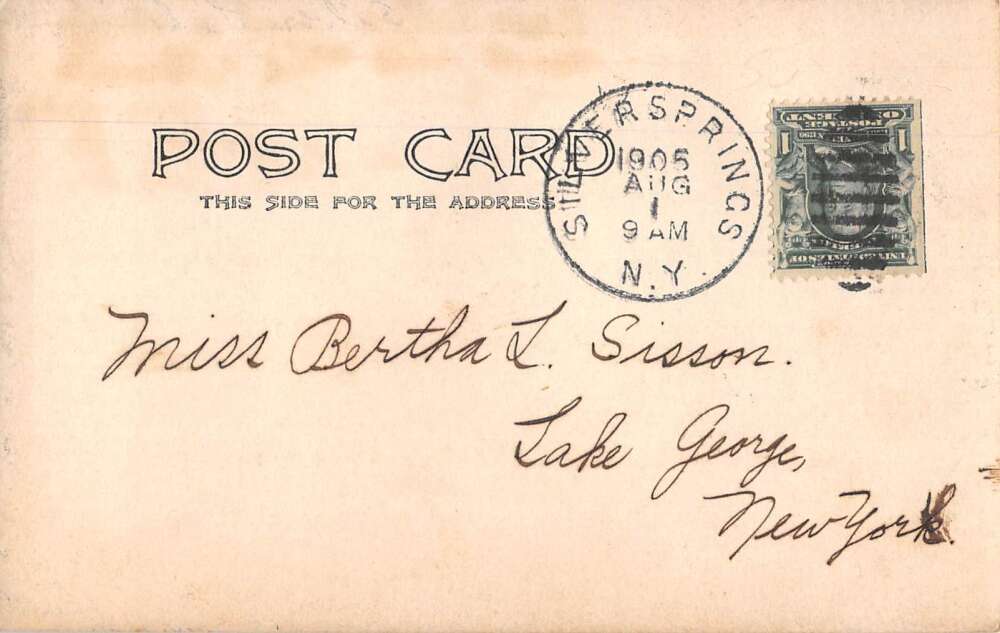 POST CARD
THIS SIDE FOR THE ADDRESS
SILVER SPRINGS
1905
AUG
1
9 AM
N.Y.
ONE CENT
POSTAGE
1
Miss Bertha L. Sisson.
Lake George,
New York.